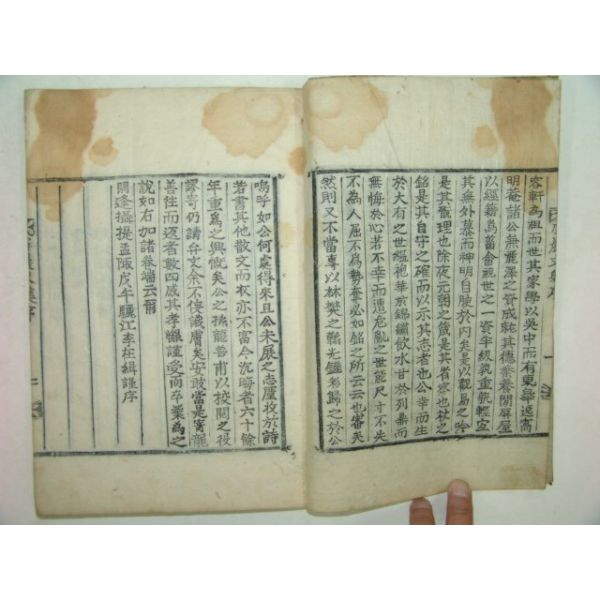 容軒為祖而世其家學以吳中而有東華遯窩
明菴諸公無麗澤之資成就其德業養閒屛屋
以經籍爲菑畬視世之一資半級艶重錙輕宜
其無外慕而神明自腴於內矣是以觀易之吟
是其翫理也除夜元朝之箴是其省察也杖之
銘是其自守之確而以示其志者也公幸而生
於大有之世縕袍華於錦繡飮水甘於列鼎而
無悔於心若不幸而遭危亂之世能尺寸不失
不為人屈不為勢奪必如銘之所云云也審矣
然則又不當專以林樊之幽光鑑彩歸之於公
嗚呼如公何處得來且公未展之志壓教於詩
若書其他散文而取亦不富今沉晦者六十餘
年重為之興慨矣公之孫龍普甫以校閱之役
謬寄仍請弁文余不侫識膚矣安敢當是寄龍
善往而返者數四感其孝謹受而卒業為之
說如右加諸卷端云爾
閼逢攝提孟陬戊午驪江李在緝謹序